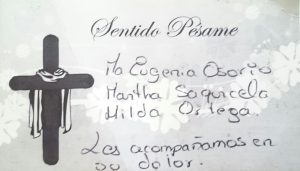 Sentido Pésame
Ma Eugenia Osorio
Martha Saquicela
Hilda Ortega.
Los acompañamos en
su dolor.